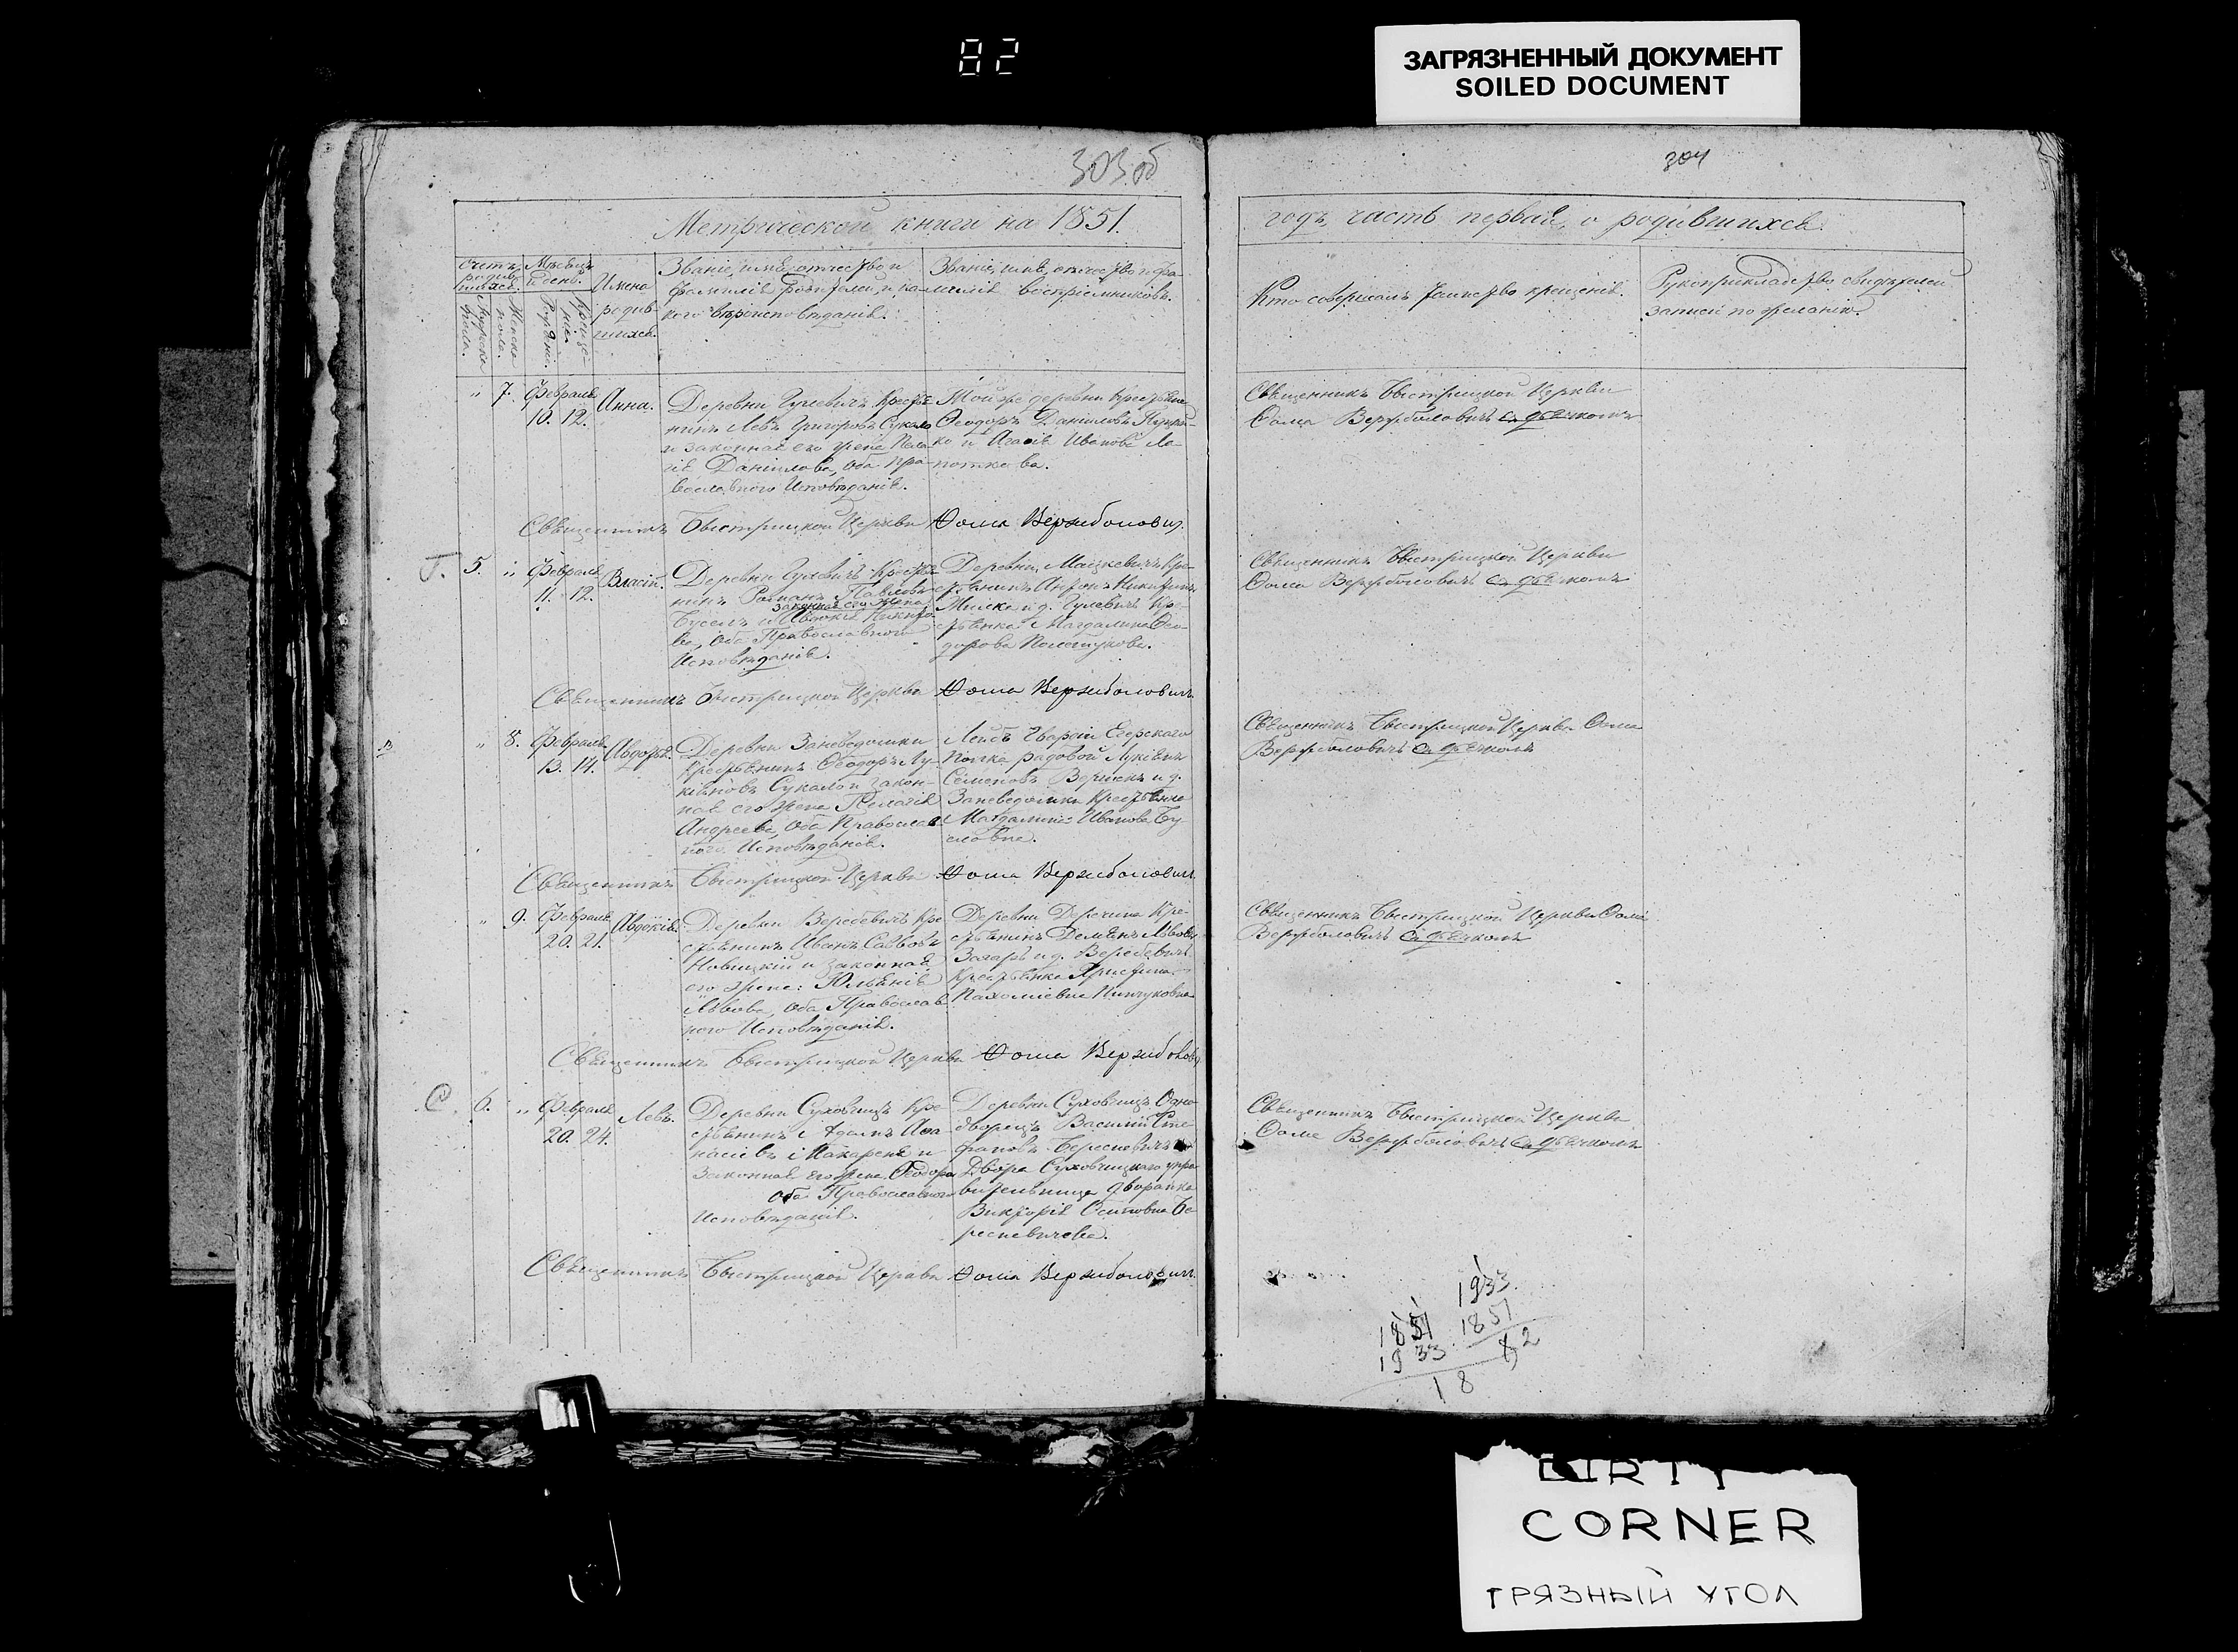 82
ЗАГРЯЗНЕННЫЙ ДОКУМЕНТ
SOILED DOCUMENT
303об
304
Метрической книги на 1851.
годъ, часть первая, о родившихся.
Счетъ родившихся.
Мужеска пола.
Женска пола.
Мѣсяцъ и день.
Рожденія.
Крещенія.
Имена родившихся.
Званіе, имя, отчество и
фамилія родителей, и ка-
кого вѣроисповѣданія.
Званіе, имя, отчество и фа-
милія воспріемниковъ.
Кто совершалъ таинство крещенія.
Рукоприкладство свидѣтелей
записи по желанію.
" 7. Февраля 10. 12. Анна.
Деревни Гулевичъ Крестья-
нинъ Левъ Григоровъ Сукало
и законная его жена Пела-
гія Даніилова, оба пра-
вославного Исповѣданія.
Той же деревни Крестьянинъ
Ѳеодоръ Даніиловъ
и Агаѳія Иванова Ла-
поткова.
Священникъ Быстрицкой Церкви
Ѳома Вержболовичъ съ дьячкомъ
Священникъ Быстрицкой Церкви Ѳома Вержболовичъ.
5. " Февраля 11. 12. Власій.
Деревни Гулевичъ Крестья-
нинъ Романъ Павловъ
законная его жена
Буселъ и Авдокія Никифо-
ва, оба Православного
Исповѣданія.
Деревни Мацкевичъ Кре-
стьянинъ Антонъ Никифоровъ
и д. Гулевичъ Кре-
стьянка Магдалина Ѳео-
дорова Полещукова.
Священникъ Быстрицкой Церкви
Ѳома Вержболовичъ съ дьячкомъ
Священникъ Быстрицкой Церкви Ѳома Вержболовичъ.
" 8. Февраля 13. 14. Авдотья.
Деревни Заневедомики
Крестьянинъ Ѳеодоръ Лу-
кіяновъ Сукало и закон-
ная его жена Пелагія
Андреева, оба Православ-
ного Исповѣданія.
Лейбъ Гвардіи Егерскаго
Полка рядовой Лукіянъ
Семеновъ и д.
Заневедомики Крестьянка
Магдалина Иванова Бу-
словна.
Священникъ Быстрицкой Церкви Ѳома
Вержболовичъ съ дьячкомъ
Священникъ Быстрицкой Церкви Ѳома Вержболовичъ.
" 9. Февраля 20. 21. Авдокія.
Деревни Веребевичъ Кре-
стьянинъ Иванъ Саввовъ
Новицкій и законная
его жена: Юльянія
Львова, оба Православ-
ного Исповѣданія.
Деревни Деречина Кре-
стьянинъ Демьянъ Львовъ
и д. Веребевичъ
Крестьянка Христина
Пахоміевна Пинчуковна
Священникъ Быстрицкой Церкви Ѳома
Вержболовичъ съ дьячкомъ
Священникъ Быстрицкой Церкви Ѳома Вержболович
6. " Февраля 20. 24. Левъ.
Деревни Суховщицъ Кре-
стьянинъ Адамъ Аѳа-
насіевъ Макареня и
законная его жена Ѳеодора
оба Православного
Исповѣданія.
Деревни Суховщицъ Одно-
дворецъ Василій Сте-
фановъ Бересневичъ и
Двора Суховщицкаго упра-
вительница дворянка
Викторія Осиповна Бе-
ресневичева.
Священникъ Быстрицкой Церкви
Ѳома Вержболовичъ съ дьячкомъ
Священникъ Быстрицкой Церкви Ѳома Вержболовичъ.
1933.
1851
82
1851
1933
18
DIRTY
CORNER
ГРЯЗНЫЙ УГОЛ